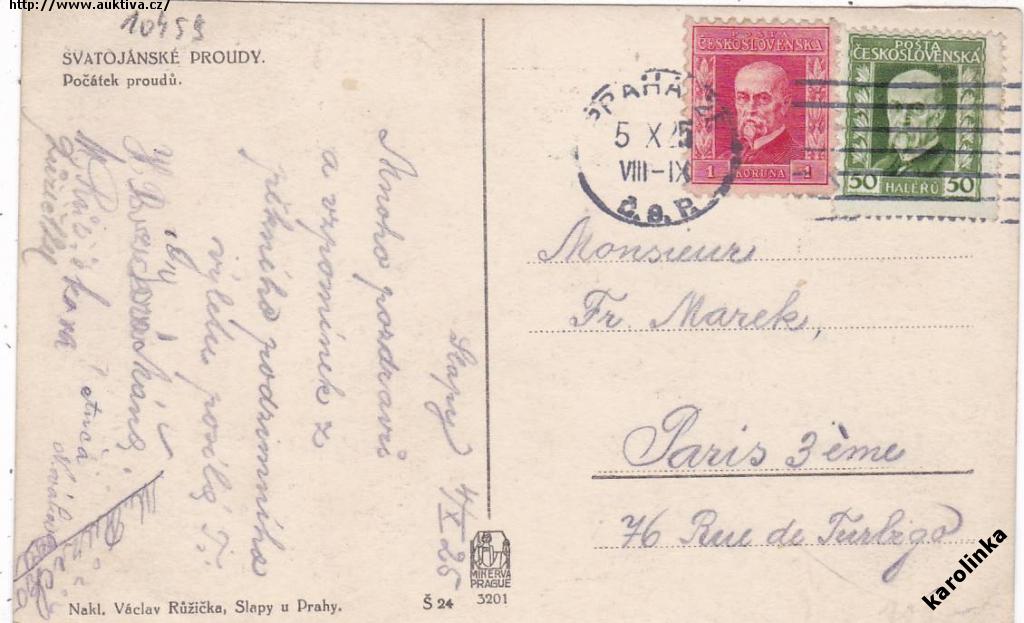 http://www.auktiva.cz/
10459
SVATOJÁNSKÉ PROUDY.
Počátek proudů.
Slapy 4/X 25
Mnoho pozdravů
a vzpomínek z
pěkného podzimního
výletu posílá
Nakl. Václav Růžička, Slapy u Prahy.
Š 24
MINERVA
PRAGUE
3201
POŠTA
ČESKOSLOVENSKA
1 KORUNA 1
POŠTA
ČESKOSLOVENSKA
50 HALÉŘŮ 50
PRAHA
5 X 25
VIII-IX
Č.S.P.
Monsieur
Fr. Marek,
Paris 3ème
76 Rue de Turbigo
karolinka